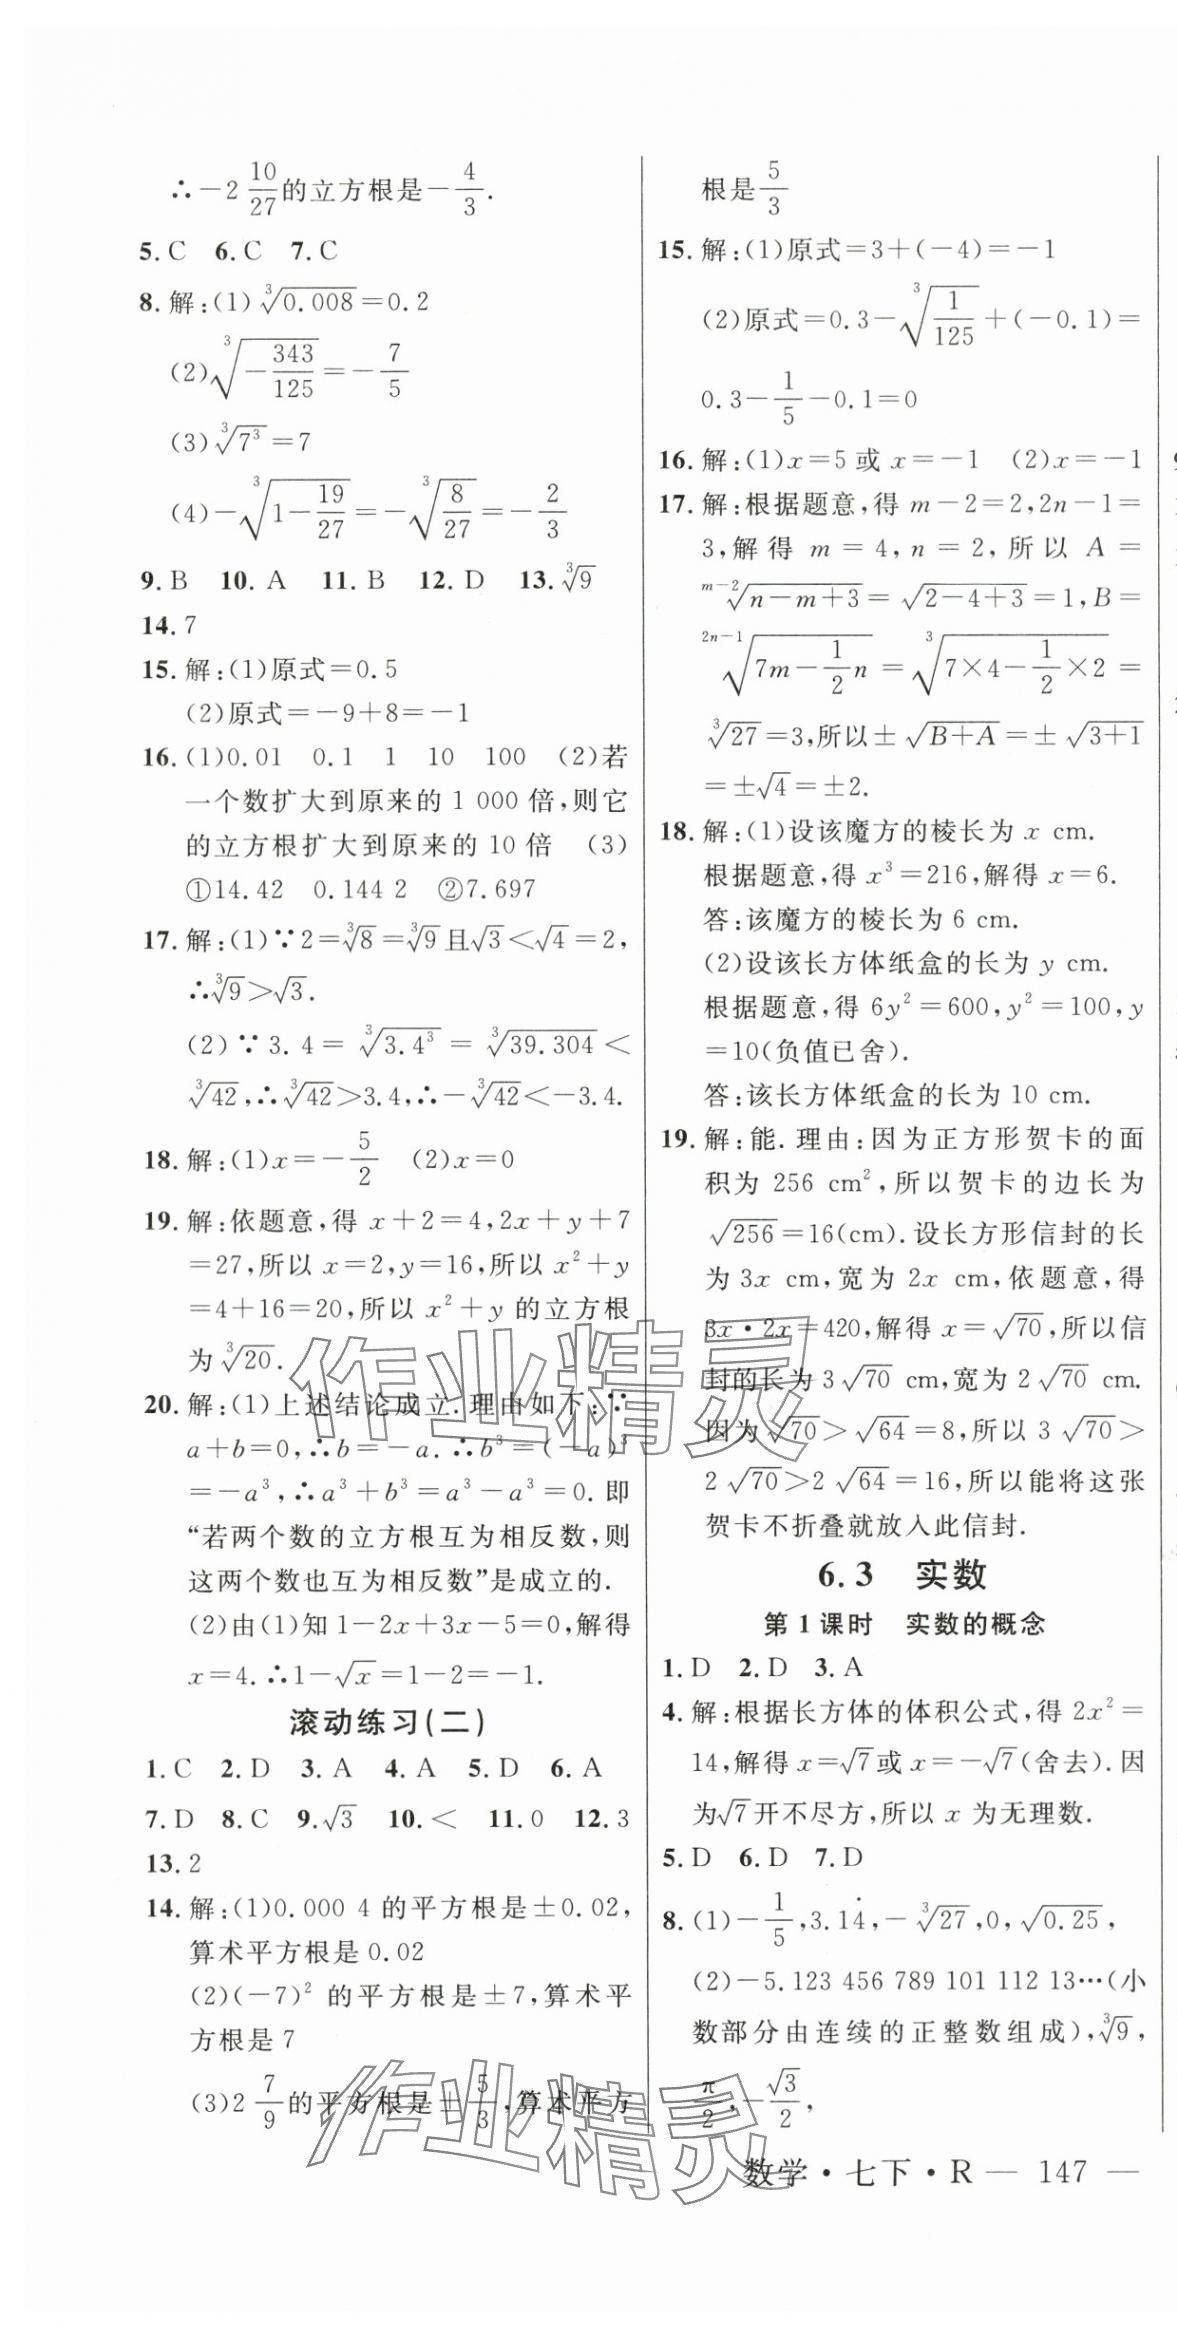 ∴－2 10/27的立方根是－4/3.
5.C 6.C 7.C
8.解:(1)∛0.008＝0.2
(2)∛(－343/125)＝－7/5
(3)∛7³＝7
(4)－∛(1－19/27)＝－∛(8/27)＝－2/3
9.B 10.A 11.B 12.D 13.∛9
14.7
15.解:(1)原式＝0.5
(2)原式＝－9＋8＝－1
16.(1)0.01 0.1 1 10 100 (2)若
一个数扩大到原来的1 000倍,则它
的立方根扩大到原来的10倍 (3)
①14.42 0.144 2 ②7.697
17.解:(1)∵2＝∛8＝∛9且√3＜√4＝2,
∴∛9＞√3.
(2)∵3.4＝∛3.4³＝∛39.304＜
∛42,∴∛42＞3.4,∴－∛42＜－3.4.
18.解:(1)x＝－5/2 (2)x＝0
19.解:依题意,得x＋2＝4,2x＋y＋7
＝27,所以x＝2,y＝16,所以x²＋y
＝4＋16＝20,所以x²＋y的立方根
为∛20.
20.解:(1)上述结论成立.理由如下:∵
a＋b＝0,∴b＝－a.∴b³＝(－a)³
＝－a³,∴a³＋b³＝a³－a³＝0.即
“若两个数的立方根互为相反数,则
这两个数也互为相反数”是成立的.
(2)由(1)知1－2x＋3x－5＝0,解得
x＝4.∴1－√x＝1－2＝－1.
滚动练习(二)
1.C 2.D 3.A 4.A 5.D 6.A
7.D 8.C 9.√3 10.＜ 11.0 12.3
13.2
14.解:(1)0.000 4的平方根是±0.02,
算术平方根是0.02
(2)(－7)²的平方根是±7,算术平
方根是7
(3)2 7/9的平方根是±5/3,算术平方
根是5/3
15.解:(1)原式＝3＋(－4)＝－1
(2)原式＝0.3－∛(1/125)＋(－0.1)＝
0.3－1/5－0.1＝0
16.解:(1)x＝5或x＝－1 (2)x＝－1
17.解:根据题意,得m－2＝2,2n－1＝
3,解得m＝4,n＝2,所以A＝
ᵐ⁻²√(n－m＋3)＝√(2－4＋3)＝1,B＝
²ⁿ⁻¹√(7m－1/2 n)＝∛(7×4－1/2×2)＝
∛27＝3,所以±√(B＋A)＝±√(3＋1)
＝±√4＝±2.
18.解:(1)设该魔方的棱长为x cm.
根据题意,得x³＝216,解得x＝6.
答:该魔方的棱长为6 cm.
(2)设该长方体纸盒的长为y cm.
根据题意,得6y²＝600,y²＝100,y
＝10(负值已舍).
答:该长方体纸盒的长为10 cm.
19.解:能.理由:因为正方形贺卡的面
积为256 cm²,所以贺卡的边长为
√256＝16(cm).设长方形信封的长
为3x cm,宽为2x cm,依题意,得
3x·2x＝420,解得x＝√70,所以信
封的长为3√70 cm,宽为2√70 cm.
因为√70＞√64＝8,所以3√70＞
2√70＞2√64＝16,所以能将这张
贺卡不折叠就放入此信封.
6.3 实数
第1课时 实数的概念
1.D 2.D 3.A
4.解:根据长方体的体积公式,得2x²＝
14,解得x＝√7或x＝－√7(舍去).因
为√7开不尽方,所以x为无理数.
5.D 6.D 7.D
8.(1)－1/5,3.14̇,－∛27,0,√0.25,
(2)－5.123 456 789 101 112 13…(小
数部分由连续的正整数组成),∛9,
π/2,－√3/2,
数学·七下·R — 147 —
作业精灵
作业精灵